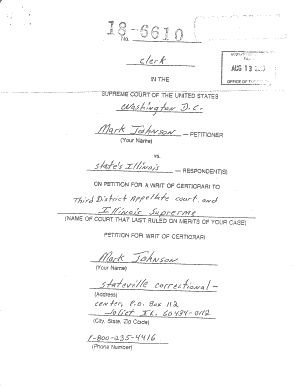 18-6610
No.
clerk
AUG 13
OFFICE OF
IN THE
SUPREME COURT OF THE UNITED STATES
Washington D.C.
Mark Johnson — PETITIONER
(Your Name)
vs.
State's Illinois — RESPONDENT(S)
ON PETITION FOR A WRIT OF CERTIORARI TO
Third District Appellate court and
Illinois Supreme
(NAME OF COURT THAT LAST RULED ON MERITS OF YOUR CASE)
PETITION FOR WRIT OF CERTIORARI
Mark Johnson
(Your Name)
stateville correctional-
(Address)
center, P.O. Box 112
Joliet IL. 60434-0112
(City, State, Zip Code)
1-800-235-4416
(Phone Number)